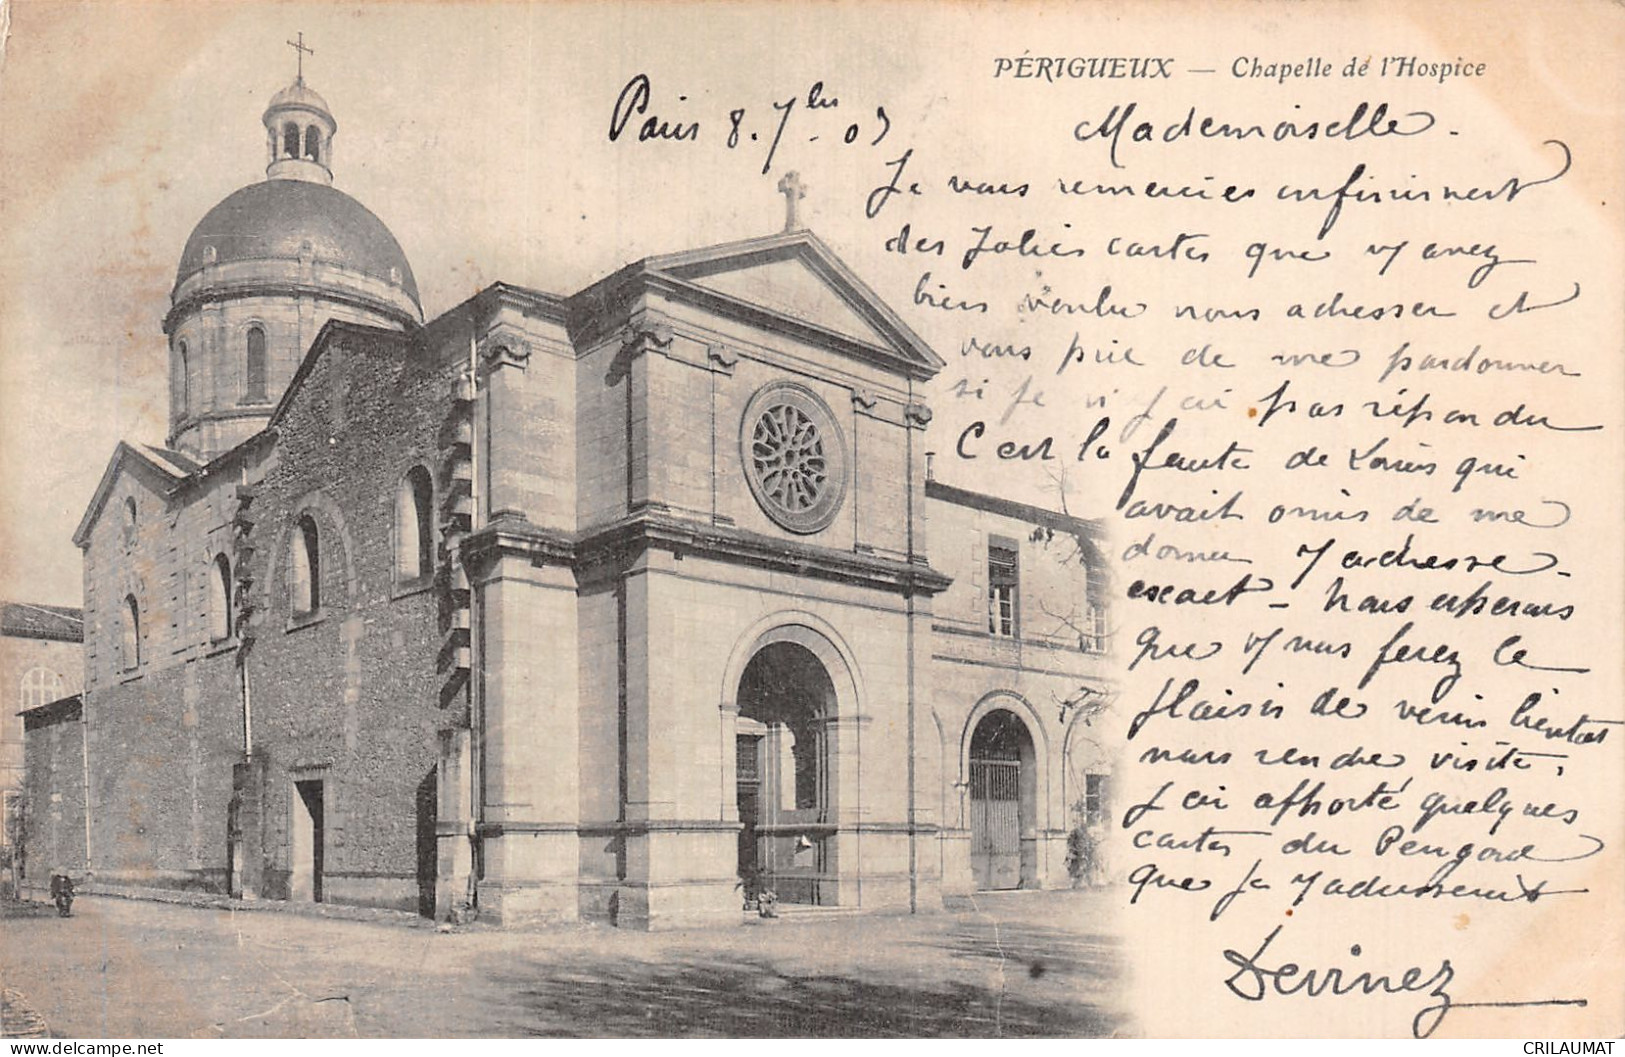 PÉRIGUEUX — Chapelle de l'Hospice
Paris 8. 7bre 03
Mademoiselle.
Je vous remercie infiniment
des Jolies cartes que v/ avez
bien voulu nous adresser et
vous prie de me pardonner
si je n'y ai pas répondu
C'est la faute de Louis qui
avait omis de me
donner v/ adresse
exact – Nous espérons
que v/ nous ferez le
plaisir de venir bientôt
nous rendre visite,
J'ai apporté quelques
cartes du Périgord
que je v/ adresserai
Devinez
CRILAUMAT